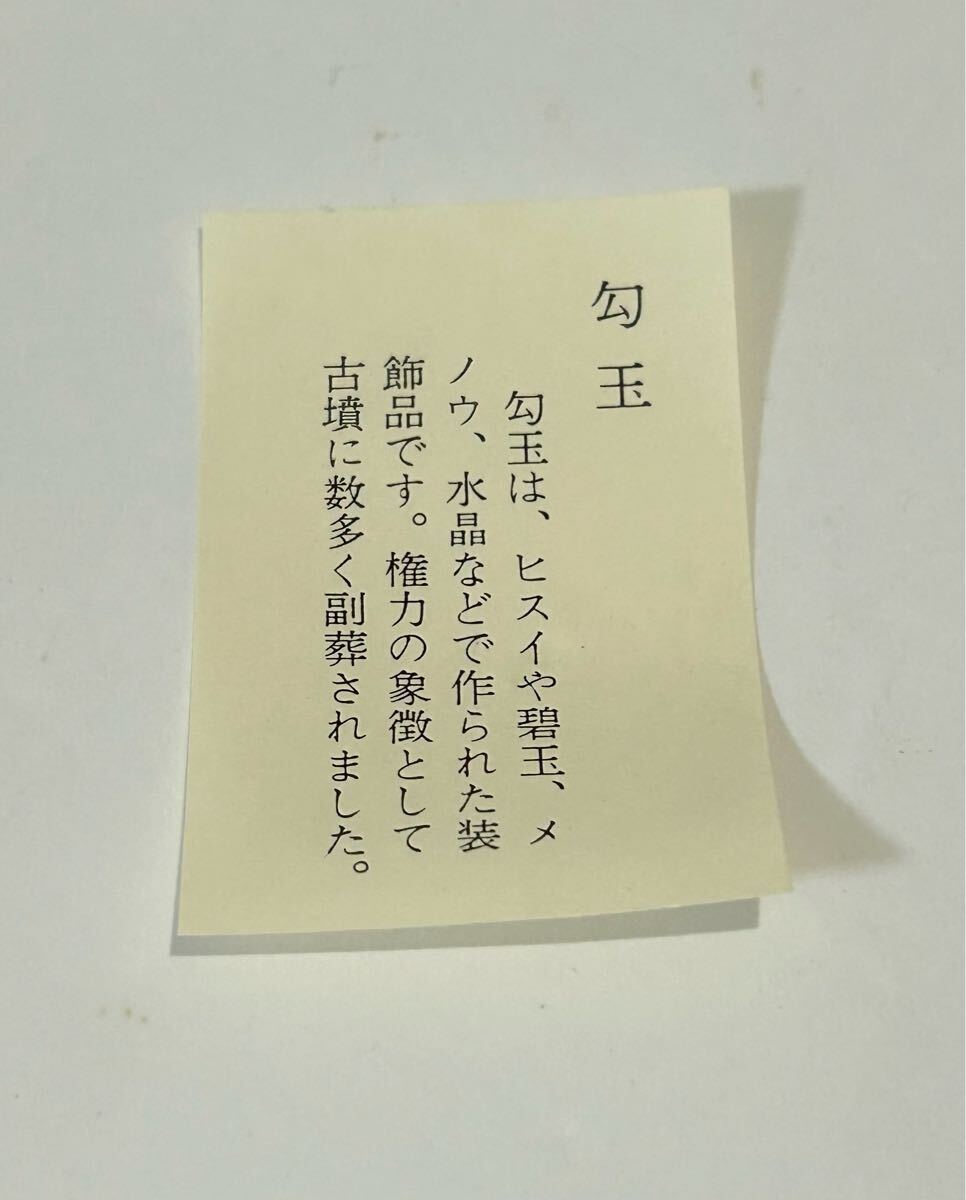 勾玉
勾玉は、ヒスイや碧玉、メ
ノウ、水晶などで作られた装
飾品です。権力の象徴として
古墳に数多く副葬されました。